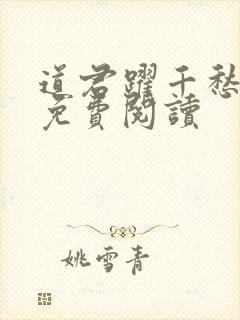 道君躍千愁
免費閱讀
姚雪青